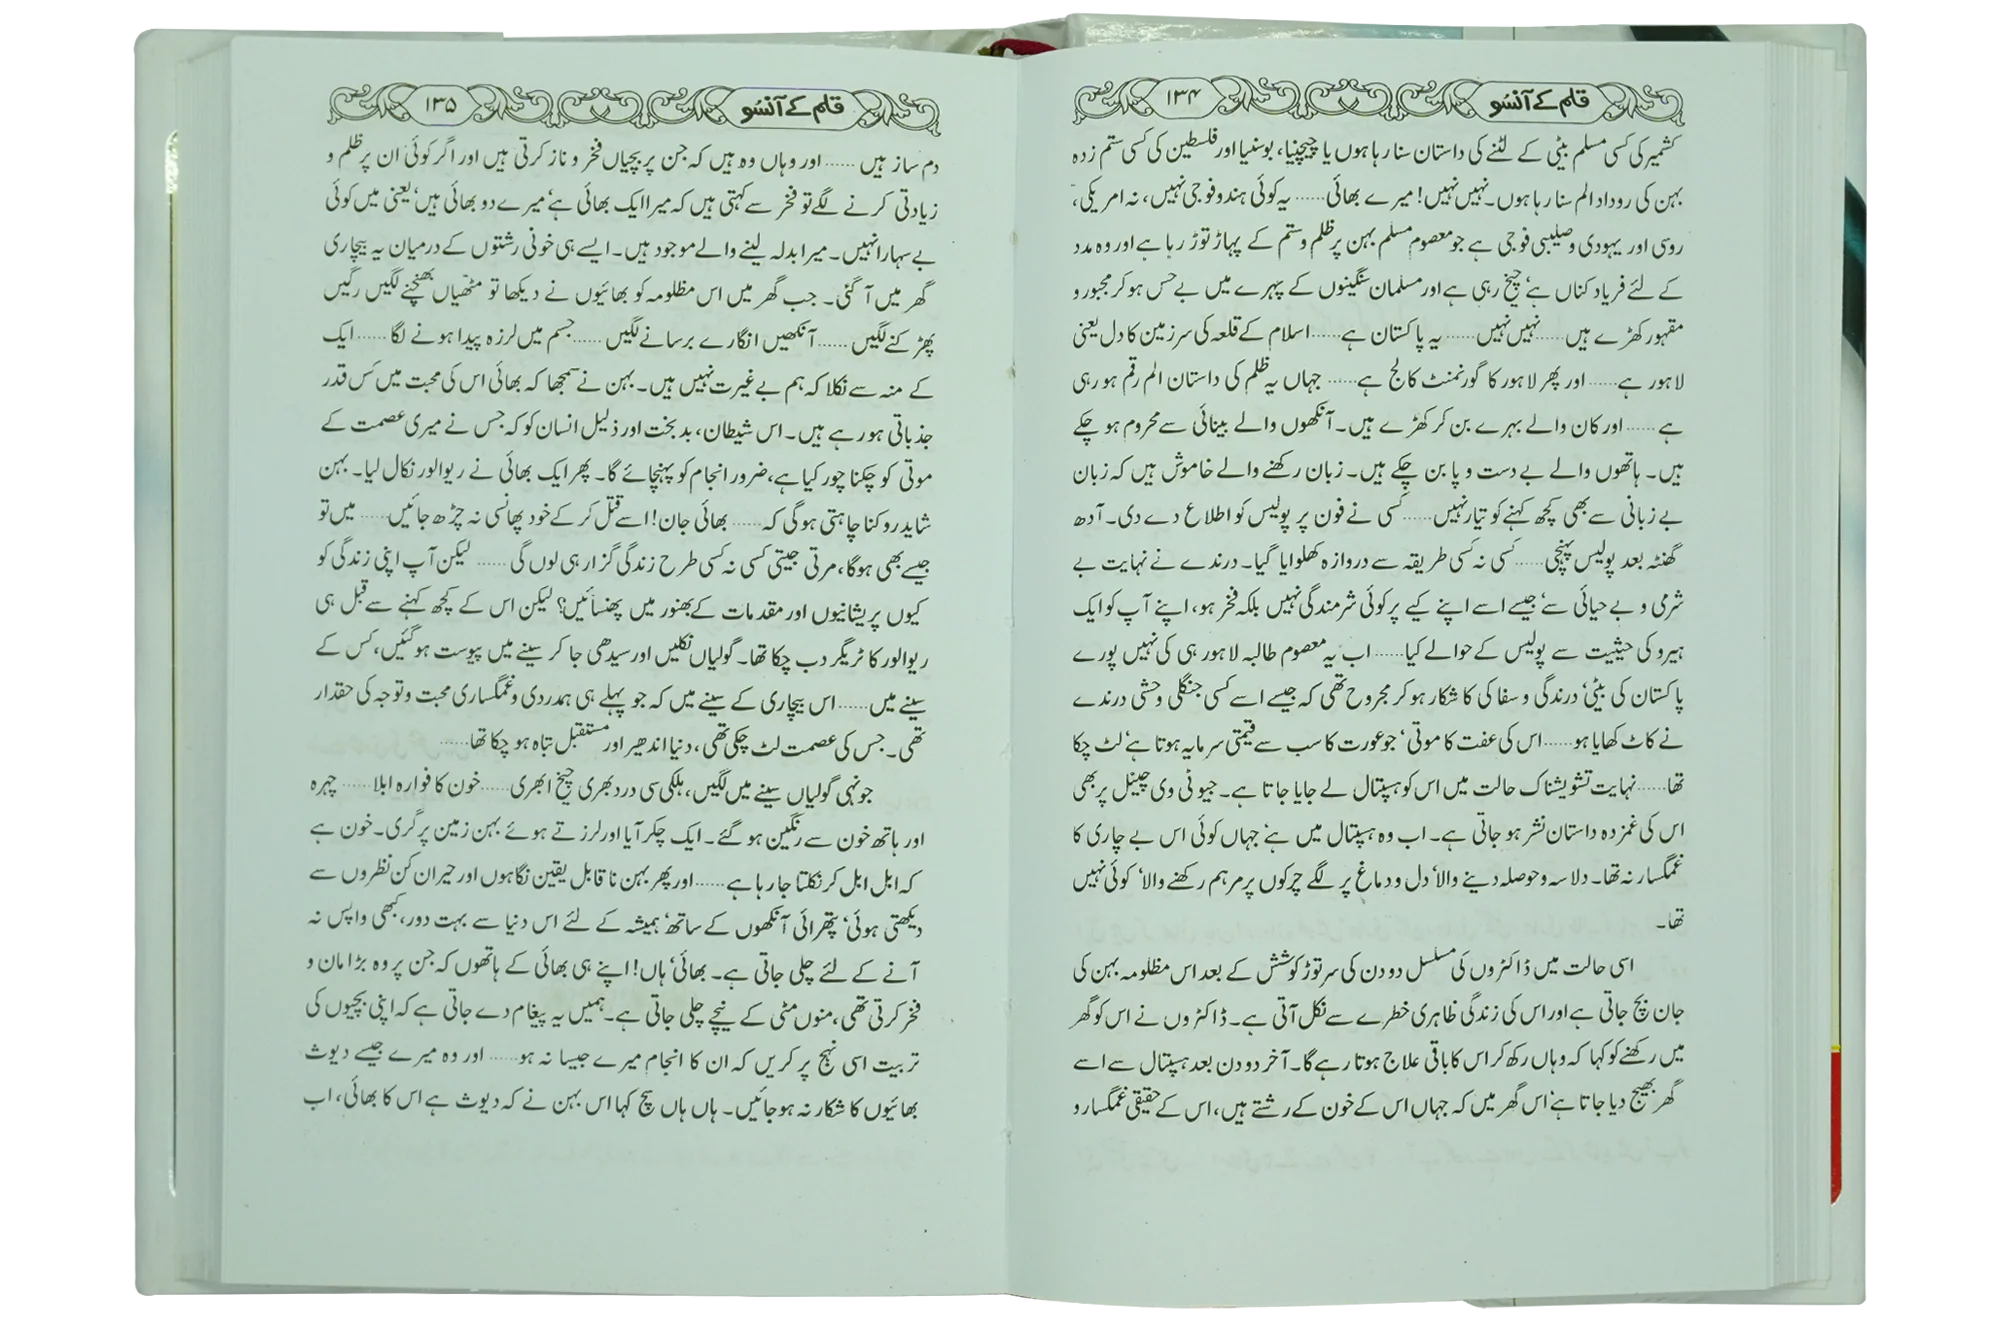 قلم کے آنسُو ۱۳۴
کشمیر کی کسی مسلم بیٹی کے لٹنے کی داستان سنا رہا ہوں یا چیچنیا، بوسنیا اور فلسطین کی کسی ستم زدہ
بہن کی روداد الم سنا رہا ہوں۔ نہیں نہیں! میرے بھائی...... یہ کوئی ہندو فوجی نہیں، نہ امریکی،
روسی اور یہودی و صلیبی فوجی ہے جو معصوم مسلم بہن پر ظلم و ستم کے پہاڑ توڑ رہا ہے اور وہ مدد
کے لئے فریاد کناں ہے‘ چیخ رہی ہے اور مسلمان سنگینوں کے پہرے میں بے حس ہو کر مجبور و
مقہور کھڑے ہیں...... نہیں نہیں...... یہ پاکستان ہے...... اسلام کے قلعہ کی سرزمین کا دل یعنی
لاہور ہے...... اور پھر لاہور کا گورنمنٹ کالج ہے...... جہاں یہ ظلم کی داستان الم رقم ہو رہی
ہے...... اور کان والے بہرے بن کر کھڑے ہیں۔ آنکھوں والے بینائی سے محروم ہو چکے
ہیں۔ ہاتھوں والے بے دست و پا بن چکے ہیں۔ زبان رکھنے والے خاموش ہیں کہ زبان
بے زبانی سے بھی کچھ کہنے کو تیار نہیں...... کسی نے فون پر پولیس کو اطلاع دے دی۔ آدھ
گھنٹہ بعد پولیس پہنچی...... کسی نہ کسی طریقہ سے دروازہ کھلوایا گیا۔ درندے نے نہایت بے
شرمی و بے حیائی سے‘ جیسے اسے اپنے کیے پر کوئی شرمندگی نہیں بلکہ فخر ہو، اپنے آپ کو ایک
ہیرو کی حیثیت سے پولیس کے حوالے کیا...... اب یہ معصوم طالبہ لاہور ہی کی نہیں پورے
پاکستان کی بیٹی‘ درندگی و سفاکی کا شکار ہو کر مجروح تھی کہ جیسے اسے کسی جنگلی وحشی درندے
نے کاٹ کھایا ہو...... اس کی عفت کا موتی‘ جو عورت کا سب سے قیمتی سرمایہ ہوتا ہے‘ لٹ چکا
تھا...... نہایت تشویشناک حالت میں اس کو ہسپتال لے جایا جاتا ہے۔ جیو ٹی وی چینل پر بھی
اس کی غمزدہ داستان نشر ہو جاتی ہے۔ اب وہ ہسپتال میں ہے‘ جہاں کوئی اس بے چاری کا
غمگسار نہ تھا۔ دلاسہ و حوصلہ دینے والا‘ دل و دماغ پر لگے چرکوں پر مرہم رکھنے والا‘ کوئی نہیں
تھا۔
اسی حالت میں ڈاکٹروں کی مسلسل دو دن کی سر توڑ کوشش کے بعد اس مظلومہ بہن کی
جان بچ جاتی ہے اور اس کی زندگی ظاہری خطرے سے نکل آتی ہے۔ ڈاکٹروں نے اس کو گھر
میں رکھنے کو کہا کہ وہاں رکھ کر اس کا باقی علاج ہوتا رہے گا۔ آخر دو دن بعد ہسپتال سے اسے
گھر بھیج دیا جاتا ہے‘ اس گھر میں کہ جہاں اس کے خون کے رشتے ہیں، اس کے حقیقی غمگسار و
قلم کے آنسُو ۱۳۵
دم ساز ہیں...... اور وہاں وہ ہیں کہ جن پر بچیاں فخر و ناز کرتی ہیں اور اگر کوئی ان پر ظلم و
زیادتی کرنے لگے تو فخر سے کہتی ہیں کہ میرا ایک بھائی ہے‘ میرے دو بھائی ہیں‘ یعنی میں کوئی
بے سہارا نہیں۔ میرا بدلہ لینے والے موجود ہیں۔ ایسے ہی خونی رشتوں کے درمیان یہ بیچاری
گھر میں آ گئی۔ جب گھر میں اس مظلومہ کو بھائیوں نے دیکھا تو مٹھیاں بھنچنے لگیں رگیں
پھڑکنے لگیں...... آنکھیں انگارے برسانے لگیں...... جسم میں لرزہ پیدا ہونے لگا...... ایک
کے منہ سے نکلا کہ ہم بے غیرت نہیں ہیں۔ بہن نے سمجھا کہ بھائی اس کی محبت میں کس قدر
جذباتی ہو رہے ہیں۔ اس شیطان، بدبخت اور ذلیل انسان کو کہ جس نے میری عصمت کے
موتی کو چکنا چور کیا ہے، ضرور انجام کو پہنچائے گا۔ پھر ایک بھائی نے ریوالور نکال لیا۔ بہن
شاید روکنا چاہتی ہو گی کہ...... بھائی جان! اسے قتل کر کے خود پھانسی نہ چڑھ جائیں...... میں تو
جیسے بھی ہو گا، مرتی جیتی کسی نہ کسی طرح زندگی گزار ہی لوں گی...... لیکن آپ اپنی زندگی کو
کیوں پریشانیوں اور مقدمات کے بھنور میں پھنسائیں؟ لیکن اس کے کچھ کہنے سے قبل ہی
ریوالور کا ٹریگر دب چکا تھا۔ گولیاں نکلیں اور سیدھی جا کر سینے میں پیوست ہو گئیں، کس کے
سینے میں...... اس بیچاری کے سینے میں کہ جو پہلے ہی ہمدردی و غمگساری محبت و توجہ کی حقدار
تھی۔ جس کی عصمت لٹ چکی تھی، دنیا اندھیر اور مستقبل تباہ ہو چکا تھا......
جونہی گولیاں سینے میں لگیں، ہلکی سی درد بھری چیخ ابھری...... خون کا فوارہ ابلا...... چہرہ
اور ہاتھ خون سے رنگین ہو گئے۔ ایک چکر آیا اور لرزتے ہوئے بہن زمین پر گری۔ خون ہے
کہ ابل ابل کر نکلتا جا رہا ہے...... اور پھر بہن ناقابل یقین نگاہوں اور حیران کن نظروں سے
دیکھتی ہوئی‘ پتھرائی آنکھوں کے ساتھ‘ ہمیشہ کے لئے اس دنیا سے بہت دور، کبھی واپس نہ
آنے کے لئے چلی جاتی ہے۔ بھائی‘ ہاں! اپنے ہی بھائی کے ہاتھوں کہ جن پر وہ بڑا مان و
فخر کرتی تھی، منوں مٹی کے نیچے چلی جاتی ہے۔ ہمیں یہ پیغام دے جاتی ہے کہ اپنی بچیوں کی
تربیت اسی نہج پر کریں کہ ان کا انجام میرے جیسا نہ ہو...... اور وہ میرے جیسے دیوث
بھائیوں کا شکار نہ ہو جائیں۔ ہاں ہاں سچ کہا اس بہن نے کہ دیوث ہے اس کا بھائی، اب